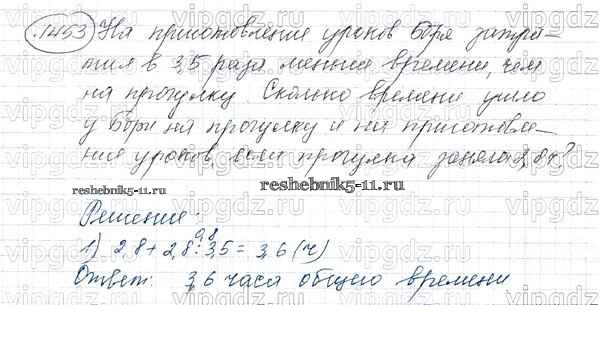 1453 На приготовление уроков Боря затра-
тил в 3,5 раза меньше времени, чем
на прогулку. Сколько времени ушло
у Бори на прогулку и на приготовле-
ние уроков, если прогулка заняла 2,8 ч?
reshebnik5-11.ru
reshebnik5-11.ru
Решение:
0,8
1) 2,8 + 2,8 : 3,5 = 3,6 (ч)
Ответ: 3,6 часа общего времени
vipgdz.com